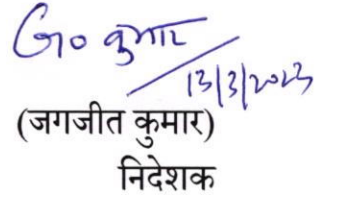 कुमार
13/3/2023
(जगजीत कुमार)
निदेशक